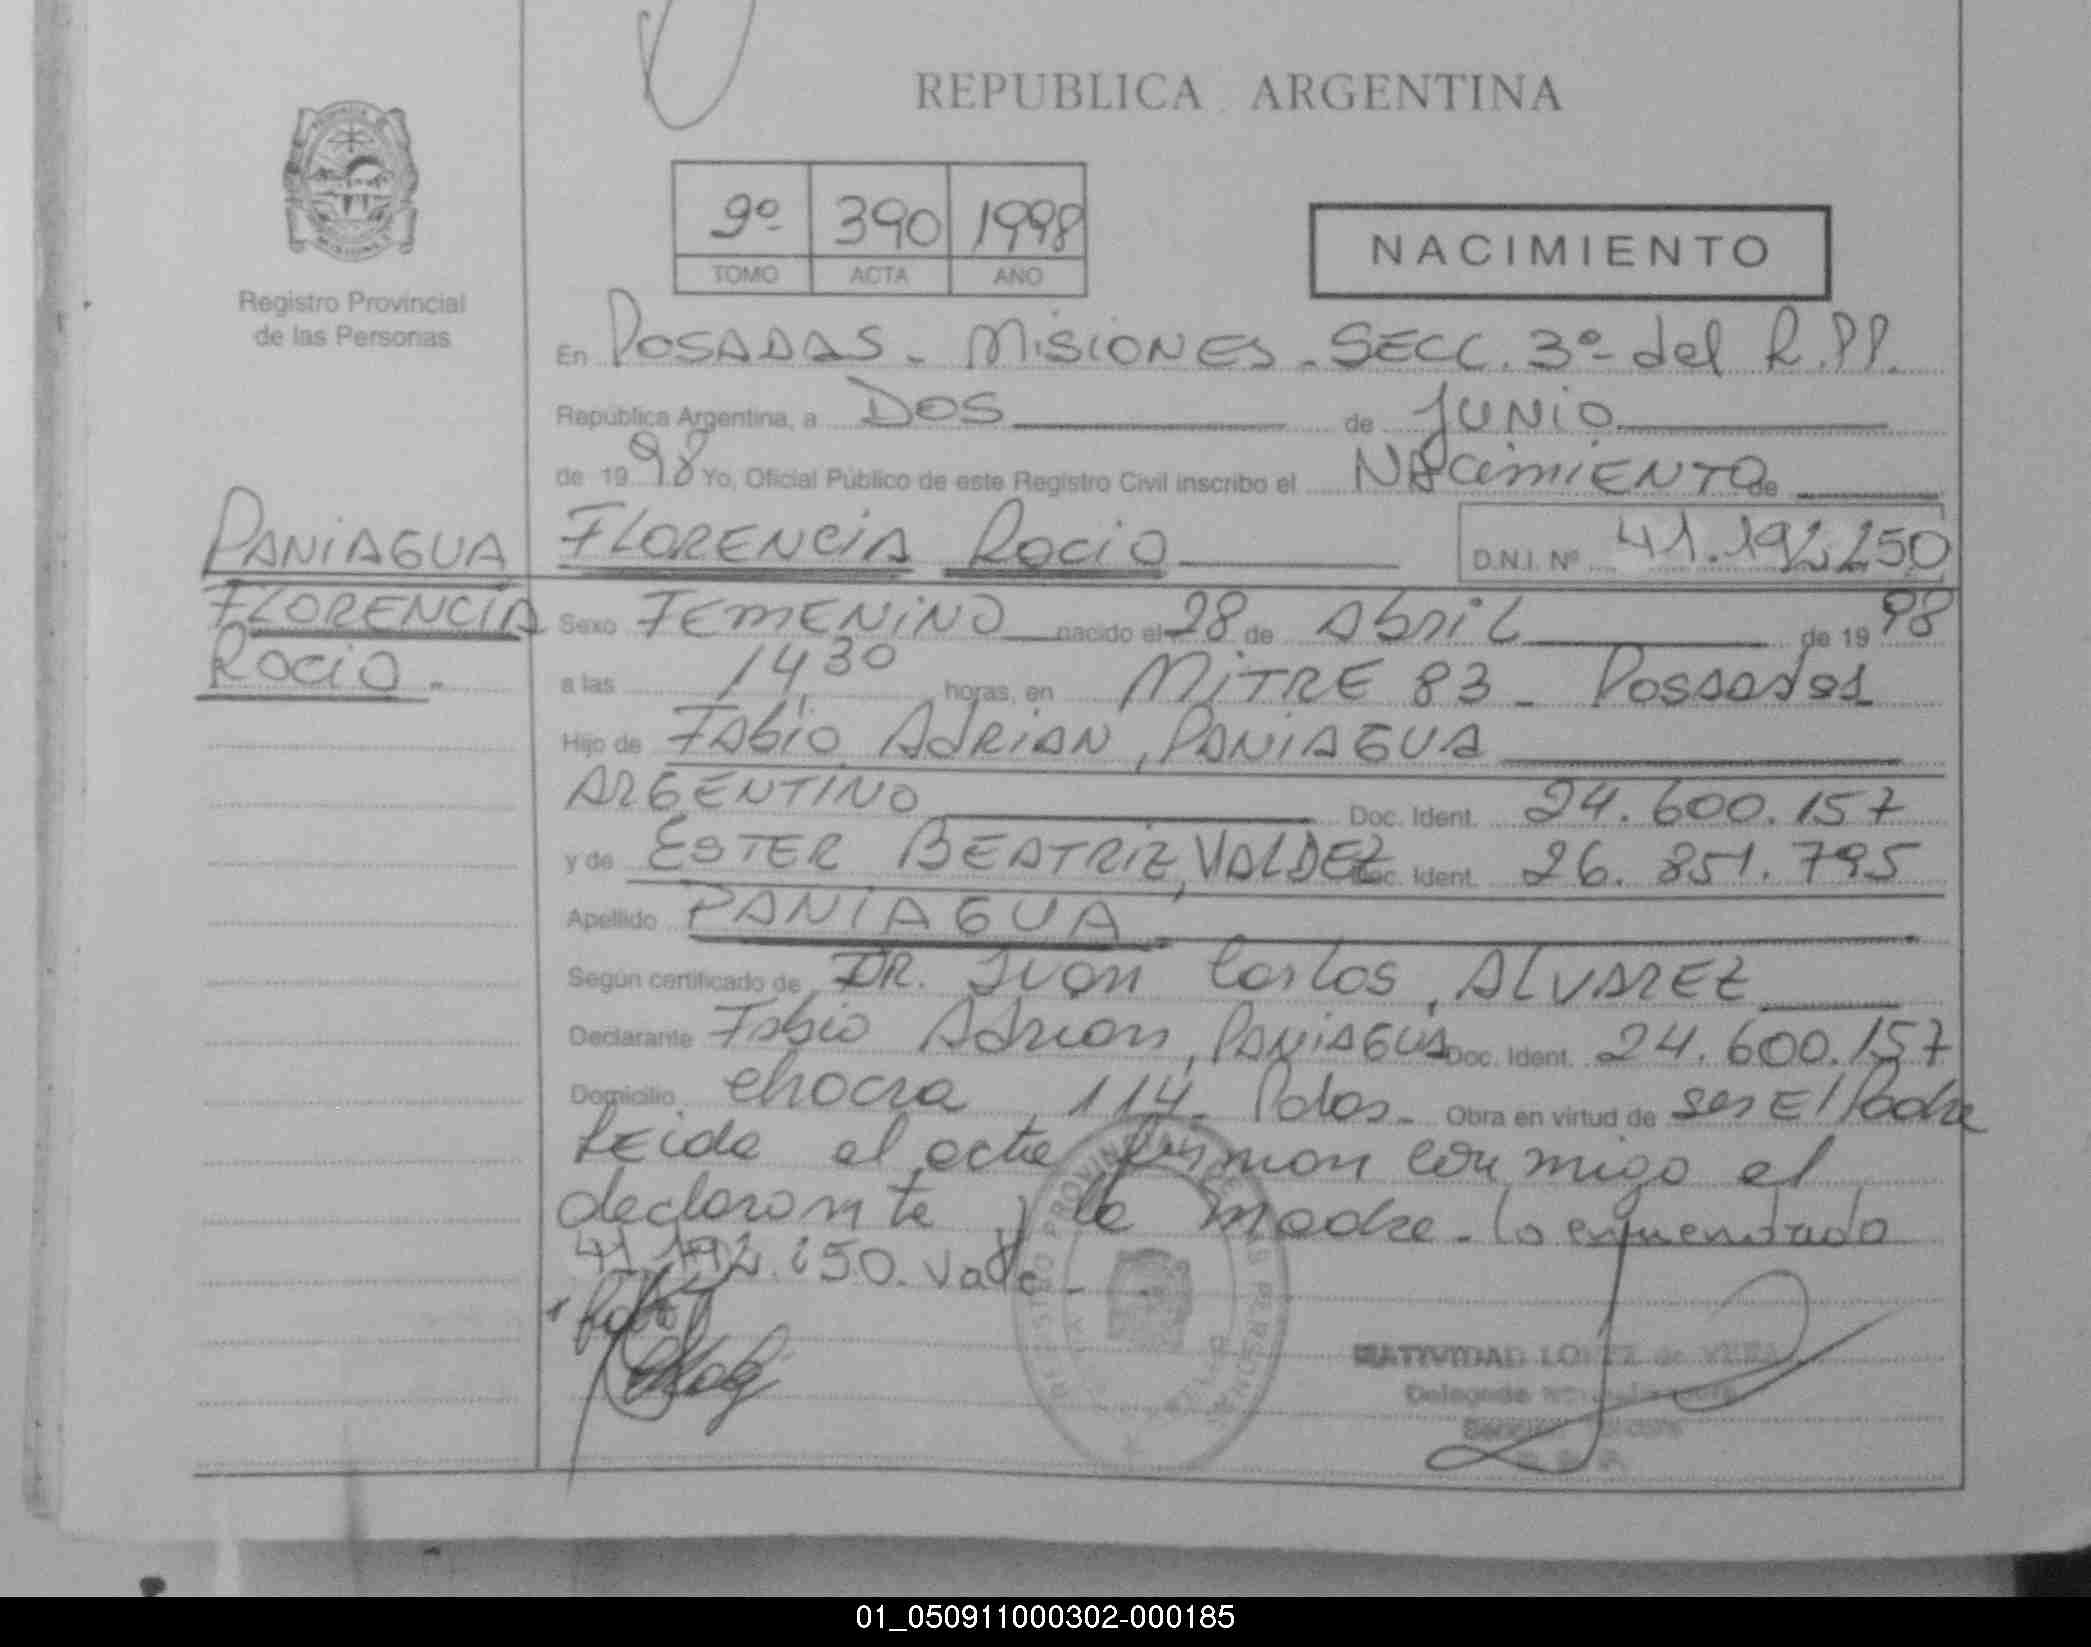 REPUBLICA ARGENTINA
Registro Provincial
de las Personas
9º 390 1998
TOMO ACTA AÑO
NACIMIENTO
En POSADAS - MISIONES - SECC. 3º del R.P.P.
República Argentina, a DOS de JUNIO
de 1998 Yo, Oficial Público de este Registro Civil inscribo el NACIMIENTO de
PANIAGUA
FLORENCIA
ROCIO.-
FLORENCIA ROCIO D.N.I. Nº 41.192.250
Sexo FEMENINO nacido el 28 de Abril de 1998
a las 14,30 horas, en MITRE 83 - Posadas
Hijo de FABIO ADRIAN, PANIAGUA
ARGENTINO Doc. Ident. 24.600.157
y de ESTER BEATRIZ, VALDEZ Doc. Ident. 26.851.795
Apellido PANIAGUA
Según certificado de DR. Juan Carlos, ALVAREZ
Declarante Fabio Adrian, PANIAGUA Doc. Ident. 24.600.157
Domicilio chacra 114- Pdas- Obra en virtud de ser El Padre
Leida el acta firman conmigo el
declarante y la madre - lo enmendado
41.192.250. vale -
REGISTRO PROVINCIAL DE LAS PERSONAS
NATIVIDAD LOPEZ de VERA
Delegada
01_050911000302-000185